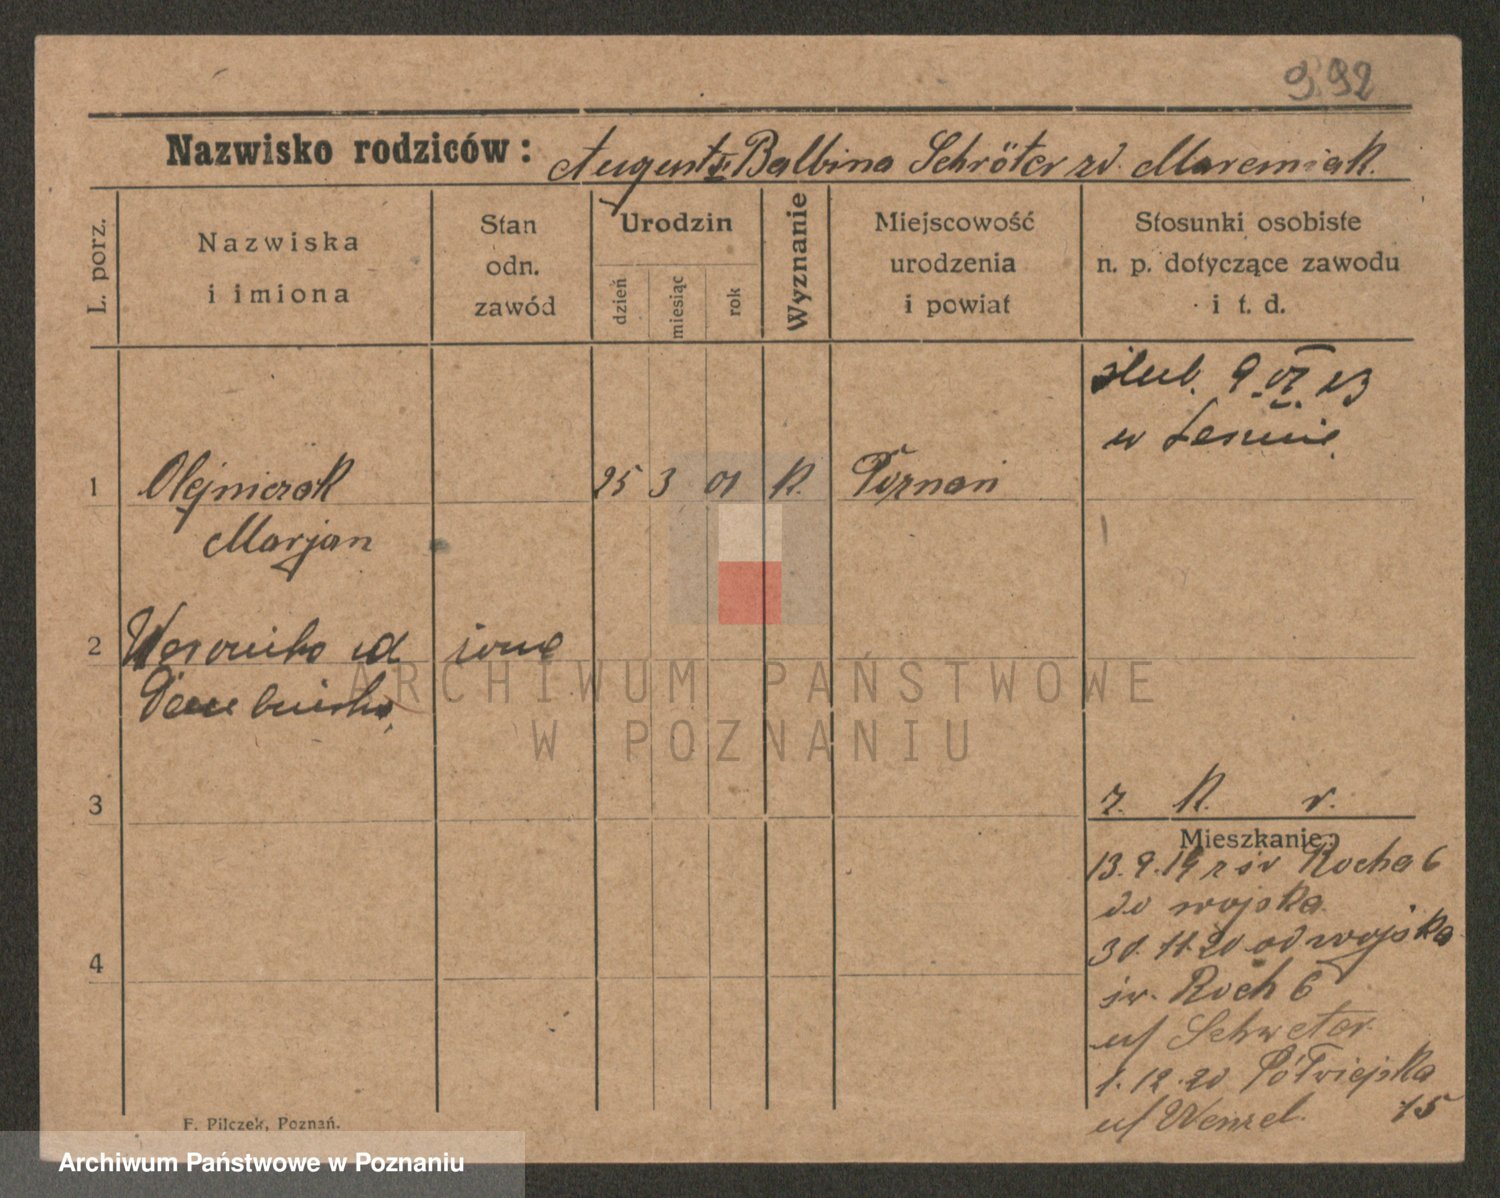 992
Nazwisko rodziców: August i Balbina Schröter zd. Marciniak.
L. porz.
Nazwiska
i imiona
Stan
odn.
zawód
Urodzin
dzień
miesiąc
rok
Wyznanie
Miejscowość
urodzenia
i powiat
Stosunki osobiste
n. p. dotyczące zawodu
i t. d.
ślub. 9. VI. 23
w
1 Olejniczak 25 3 01 K. Poznań
Marjan
2 Weronika zd żona
3
r. K. r.
Mieszkanie:
13.9.19 z św Rocha 6
do wojska
30.11.20 od wojska
św. Roch 6
u/ Schreter
1.12.20 Półwiejska
u/ Wenzel. 15
4
F. Pilczek, Poznań.
ARCHIWUM PAŃSTWOWE
W POZNANIU
Archiwum Państwowe w Poznaniu